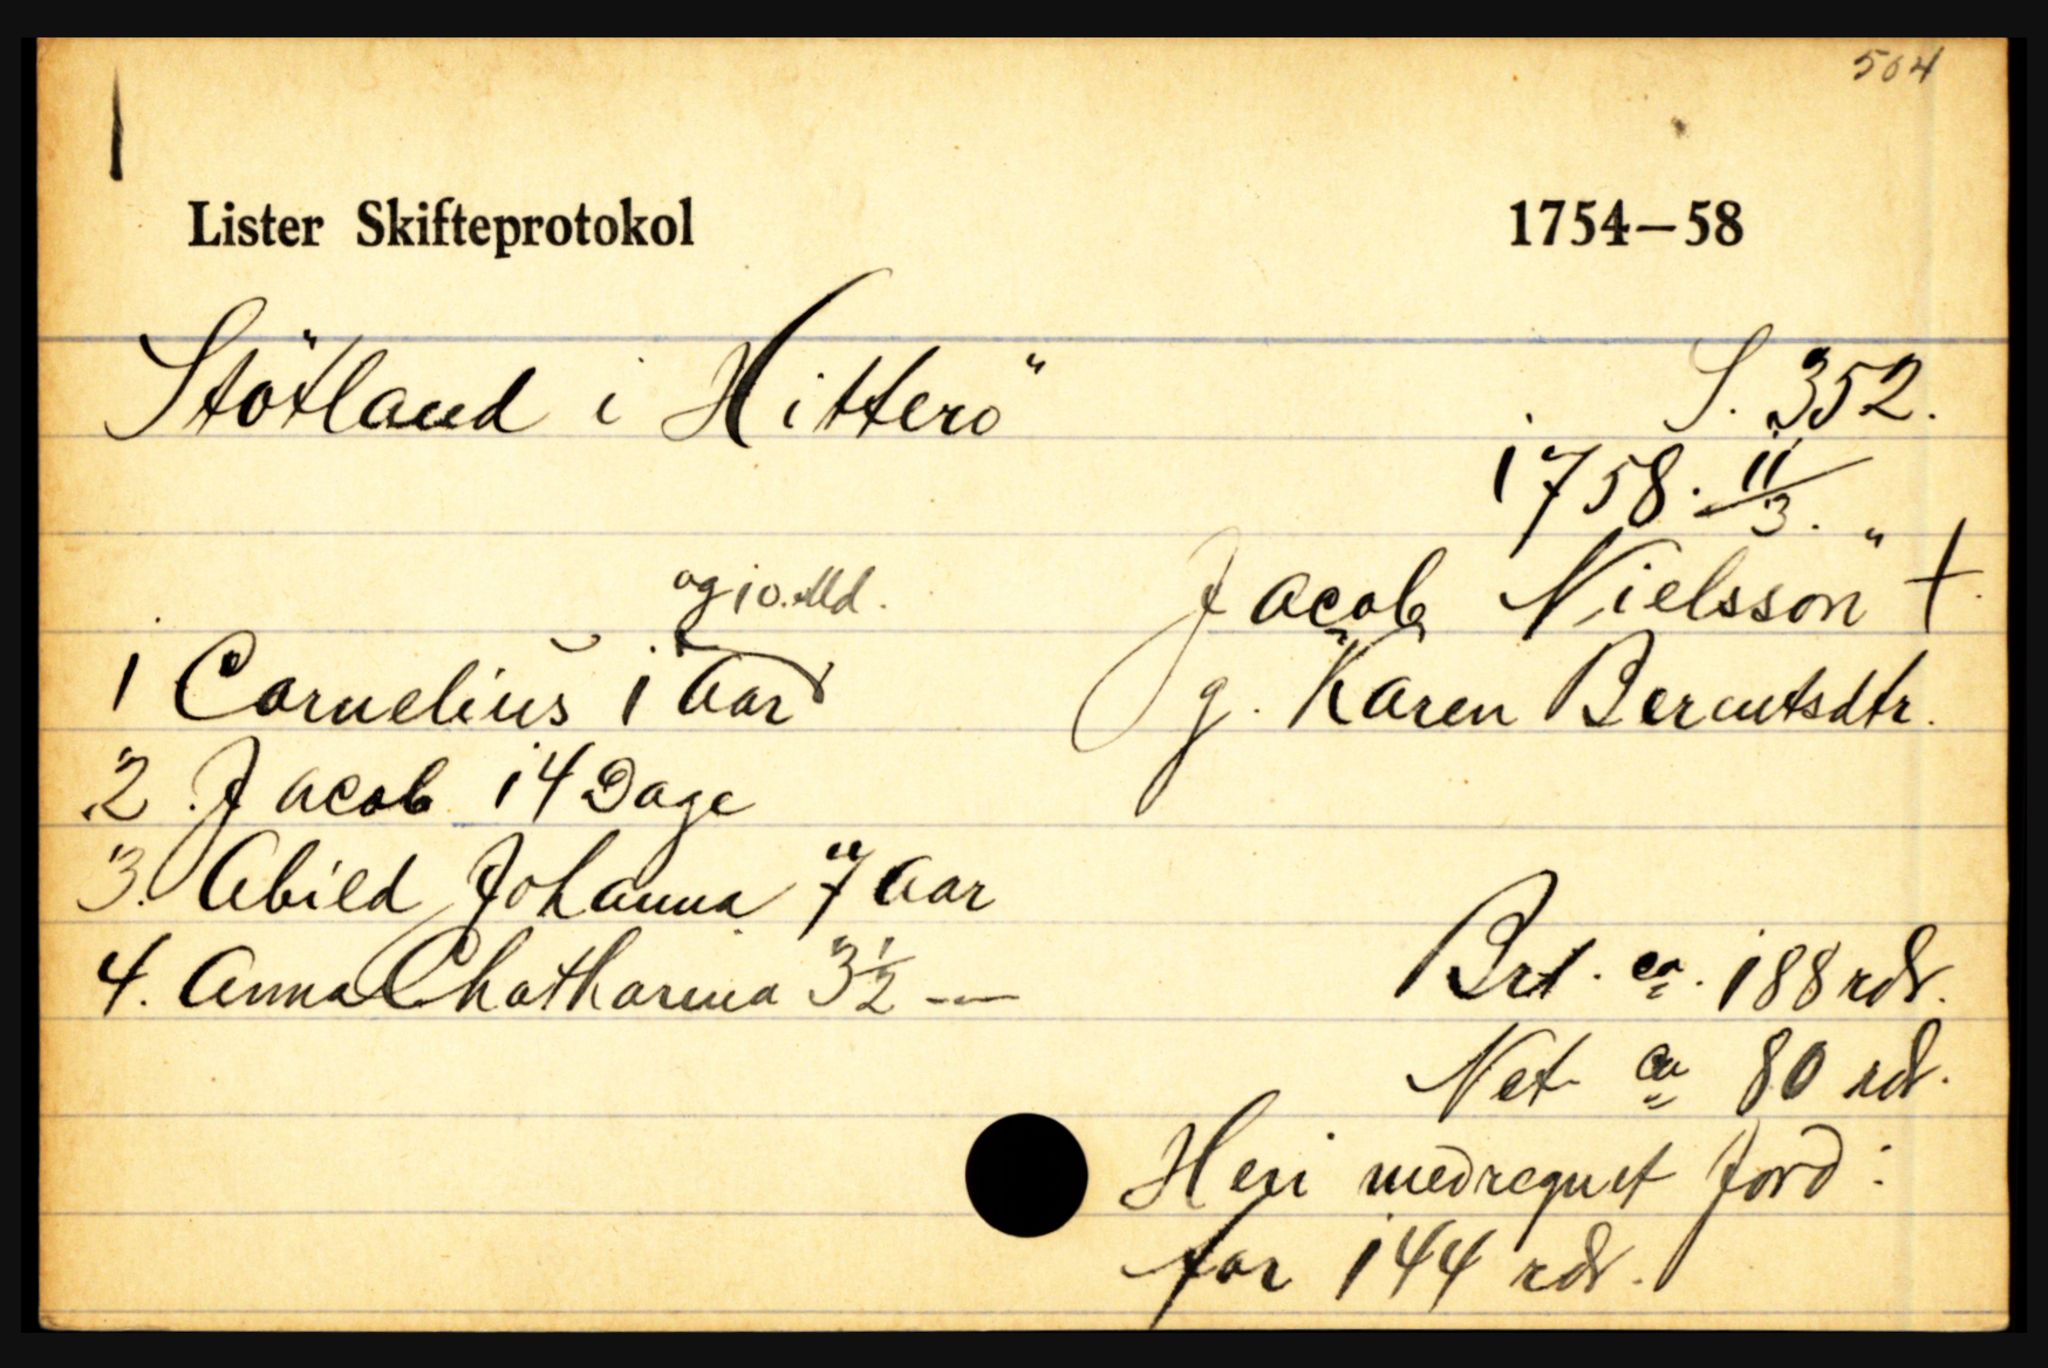 504
Lister Skifteprotokol 1754–58
Stötland i Hitterö S. 352.
1758. 11/3.
Jacob Nielssön †.
g. Karen Berentsdtr.
og 10. Md.
1 Cornelius 1 Aar
2. Jacob 14 Dage
3. Abild Johanna 7 Aar
4. Anna Chatharina 3 1/2 —
Brt. ca. 188 rdr.
Net ca 80 rdr.
Heri medregnet Jord:
for 144 rdr.